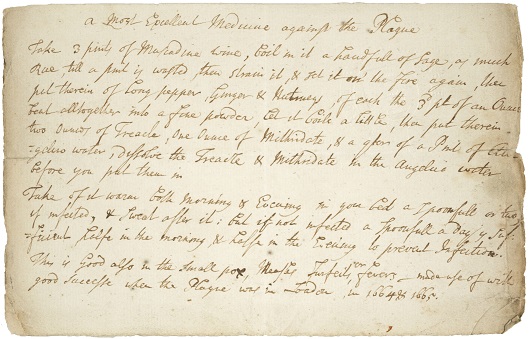 a Most Excellent Medicine against the Plague
Take 3 pints of Muscadine wine, boil in it a handfull of Sage, as much
Rue, till a pint is wasted then strain it, & set it on the fire again, then
put therein of Long pepper, Ginger & Nutmeg, of each the 3 pt of an Ounce
beat alltogether into a fine powder, let it boile a little, then put therein
two ounces of Treacle, one Ounce of Mithridate, & a qter of a Pint of An=
=gelico water, dissolve the Treacle & Mithridate in the Angelico water
before you put them in
Take of it warm both Morning & Evening in your bed a spoonfull or two
if infected, & sweat after it: but if not infected a spoonfull a day is suf=
=ficient halfe in the morning & halfe in the Evening to prevent Infection.
This is Good also in the Small pox, Measles, Surfeits, or fevers, made use of with
good success when the Plague was in London, in 1664 & 1665.